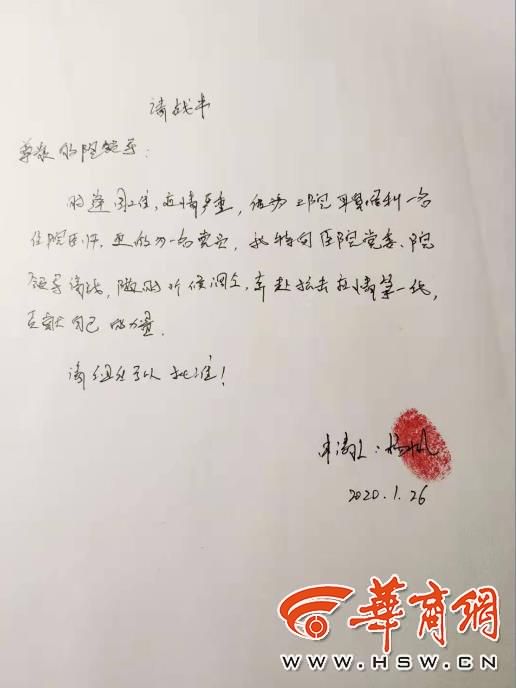 请战书
尊敬的院领导：
时逢国难，疫情严重，作为二院耳鼻喉科一名
住院医师，更作为一名党员，我特向医院党委、院
领导请战，随时听候调令，奔赴抗击疫情第一线，
贡献自己的力量。
请组织予以批准！
申请人：杨帆
2020.1.26
華商網
WWW.HSW.CN